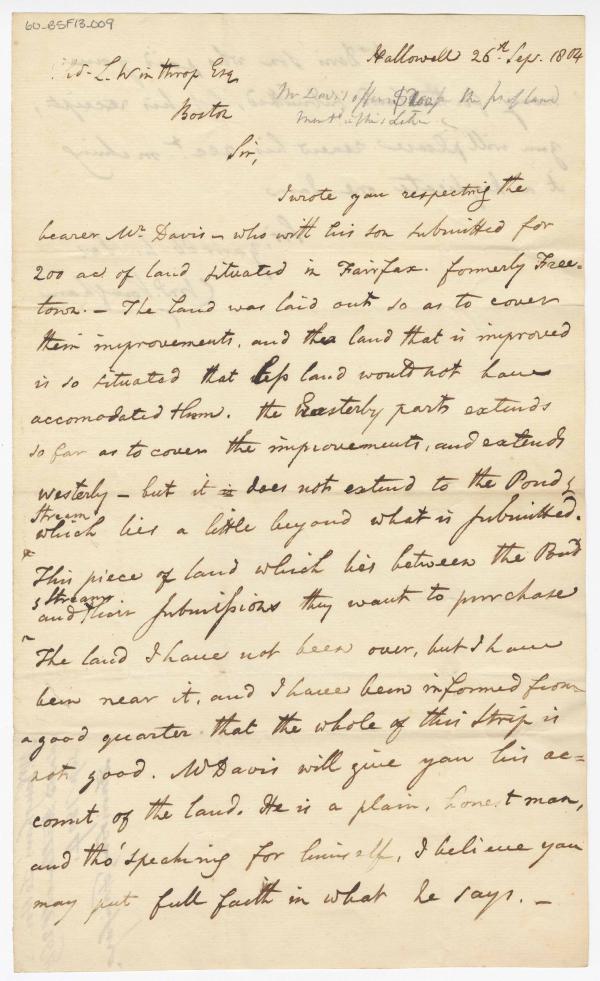 60-BSF13-009
Hallowell 26th Sep. 1804
L. Winthrop Esq.
Boston
Mr Davis offers $200 for the
in this Letter
Sir,
I wrote you respecting the
bearer Mr. Davis - who with his son submitted for
200 ac of land situated in Fairfax. formerly Free=
town. - The land was laid out so as to cover
their improvements, and the land that is improved
is so situated that less land would not have
accomodated them. the Easterly part extends
so far as to cover the improvements, and extends
westerly - but it is does not extend to the Pond &
Stream
which lies a little beyond what is submitted.
This piece of land which lies between the Pond
& Stream
and their submissions they want to purchase
The land I have not been over, but I have
been near it, and I have been informed from
a good quarter that the whole of this strip is
not good. Mr Davis will give you his ac=
count of the land. He is a plain, honest man,
and tho' speaking for himself, I believe you
may put full faith in what he says. -